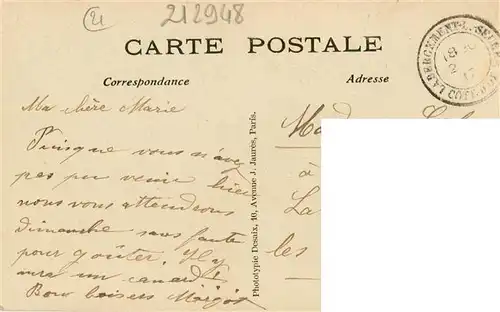 212948
CARTE POSTALE
Correspondance
Adresse
LABERGEMENT-L.-SEURRE
18
2
CÔTE-D'OR
Ma chère Marie
Puisque vous n'avez
pas pu venir hier
nous vous attendrons
dimanche sans faute
pour goûter. Il y
aura un canard!
Bons baisers Margot
Phototypie Desaix, 10, Avenue J. Jaurès, Paris.
Mad
à
La
les